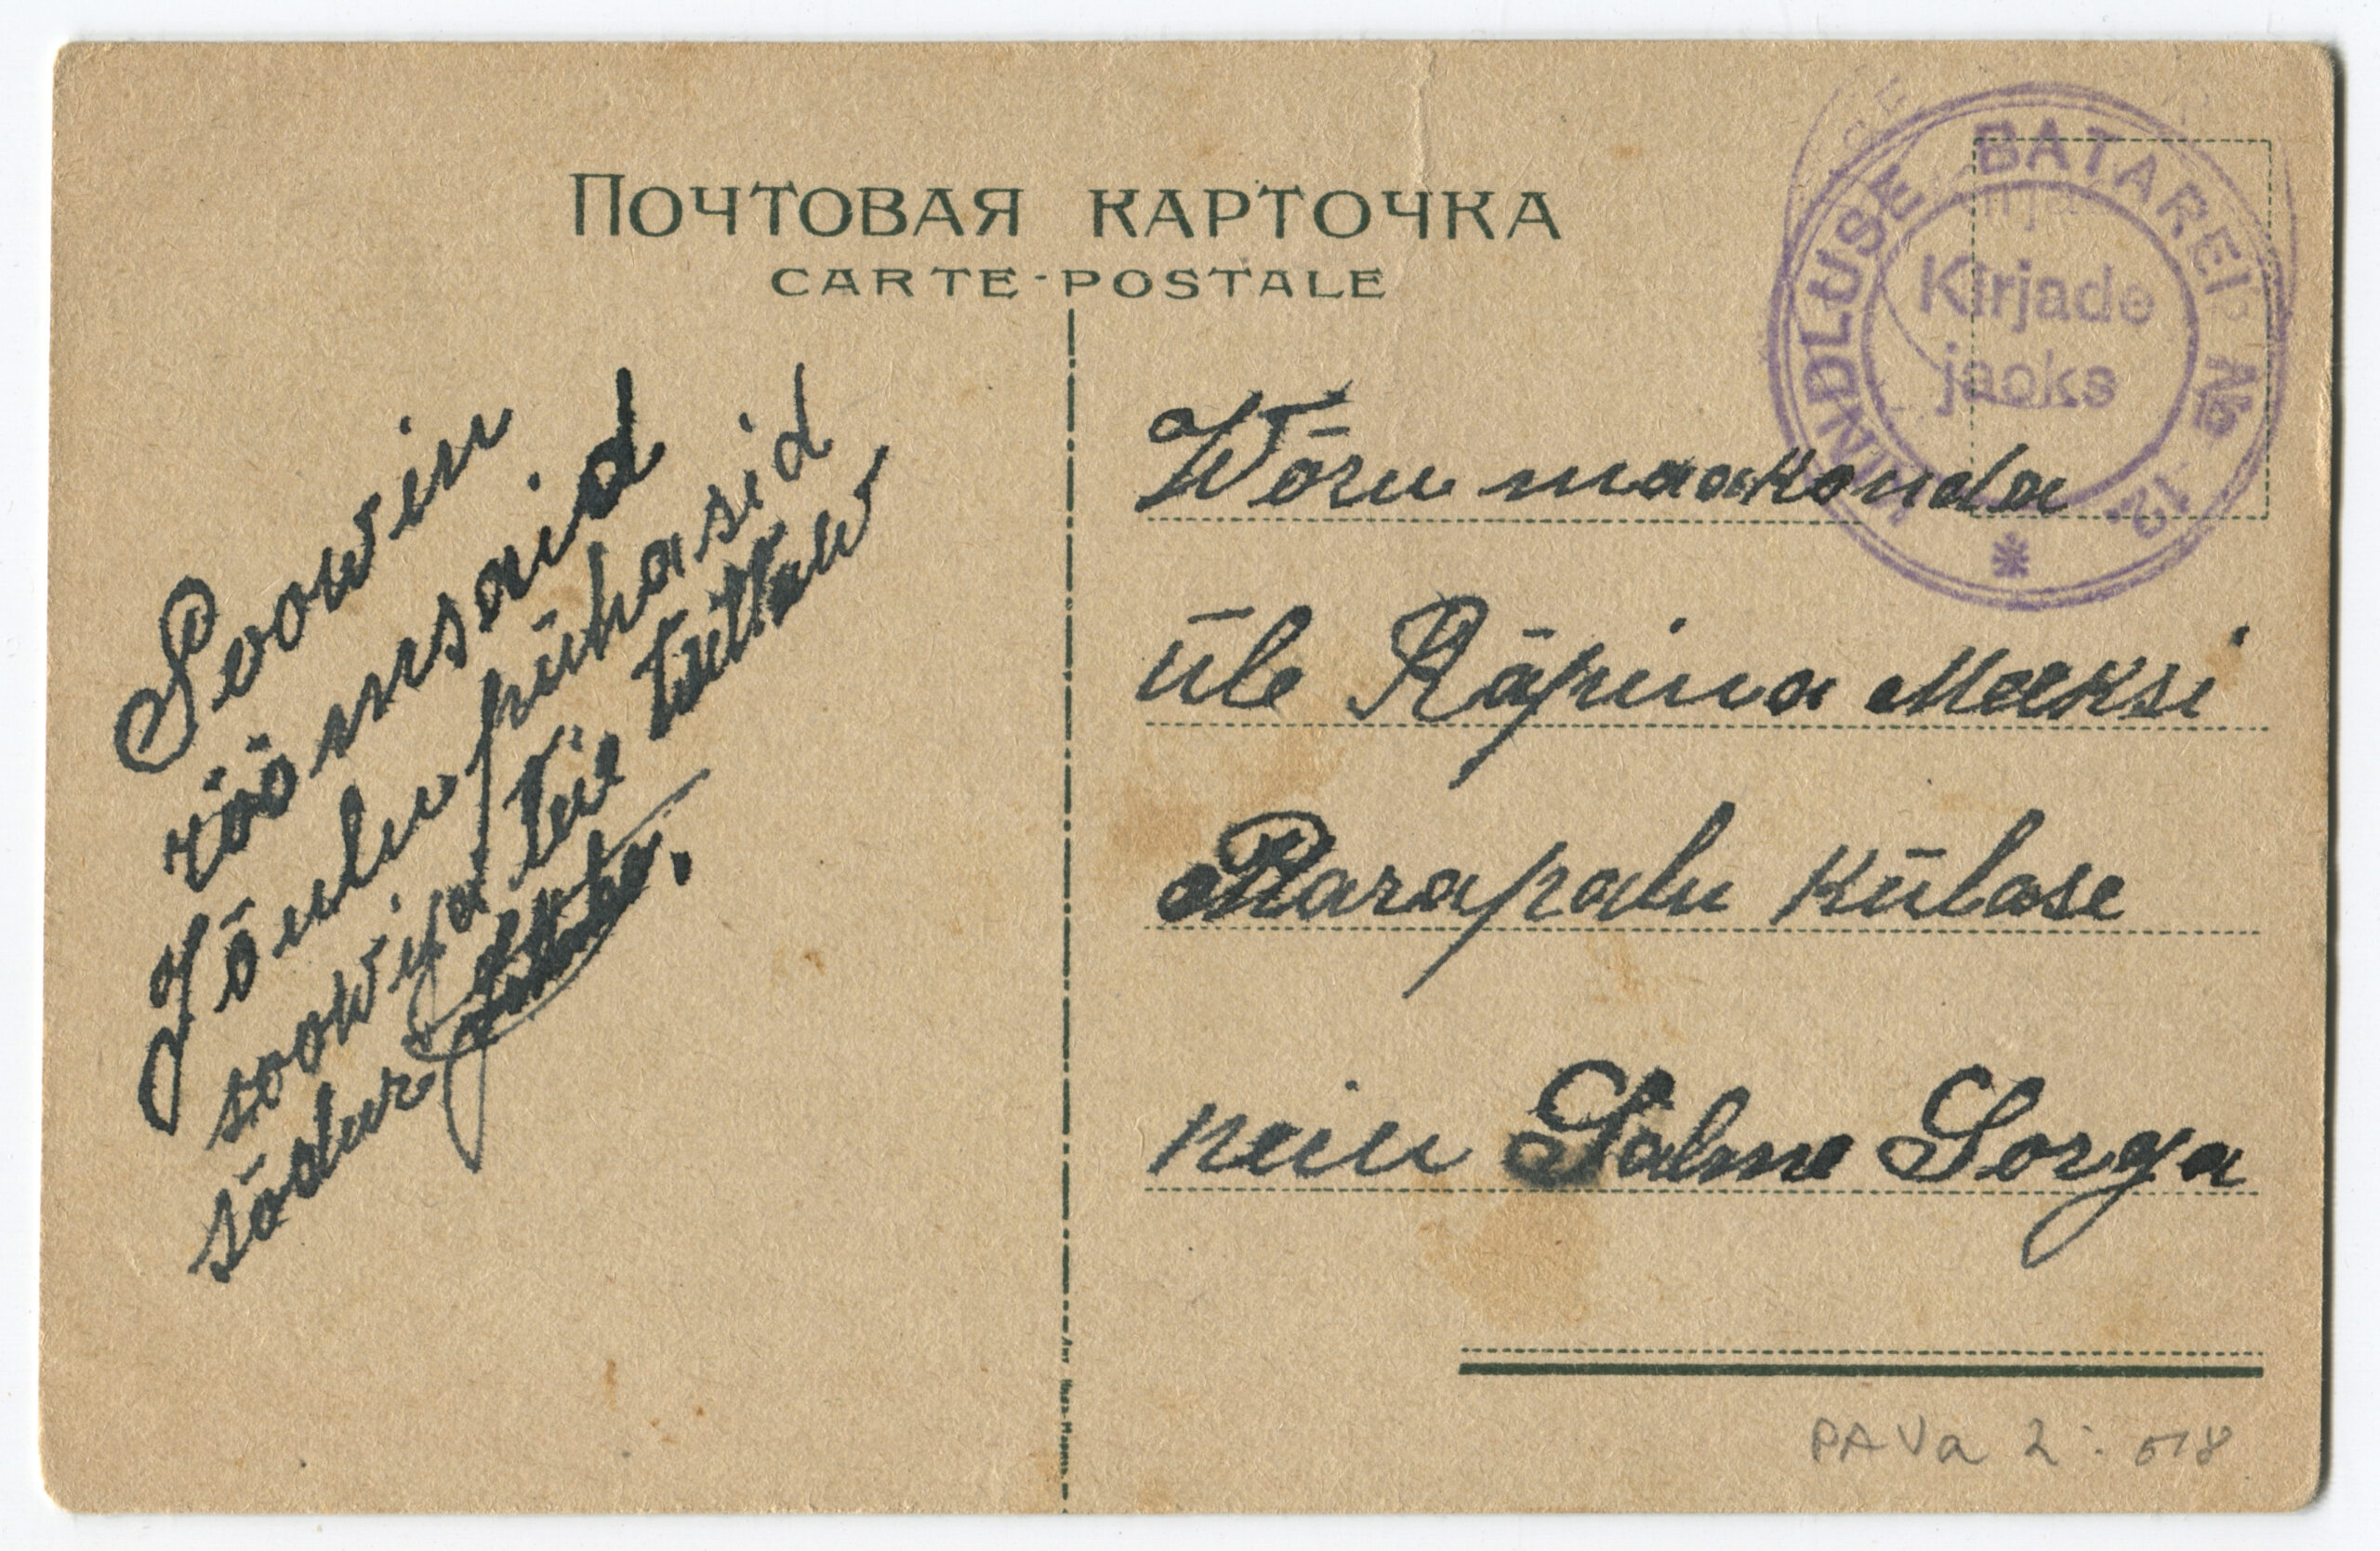 ПОЧТОВАЯ КАРТОЧКА
CARTE-POSTALE
KINDLUSE BATAREI № 12
Kirjade
jaoks
Soowin
rõõmsaid
Jõulu pühasid
soowija Teie tuttaw
sõdur
Wõru maakonda
üle Räpina Meeksi
Parapalu külase
neiu Salme Sorga
PAVa 2: 518